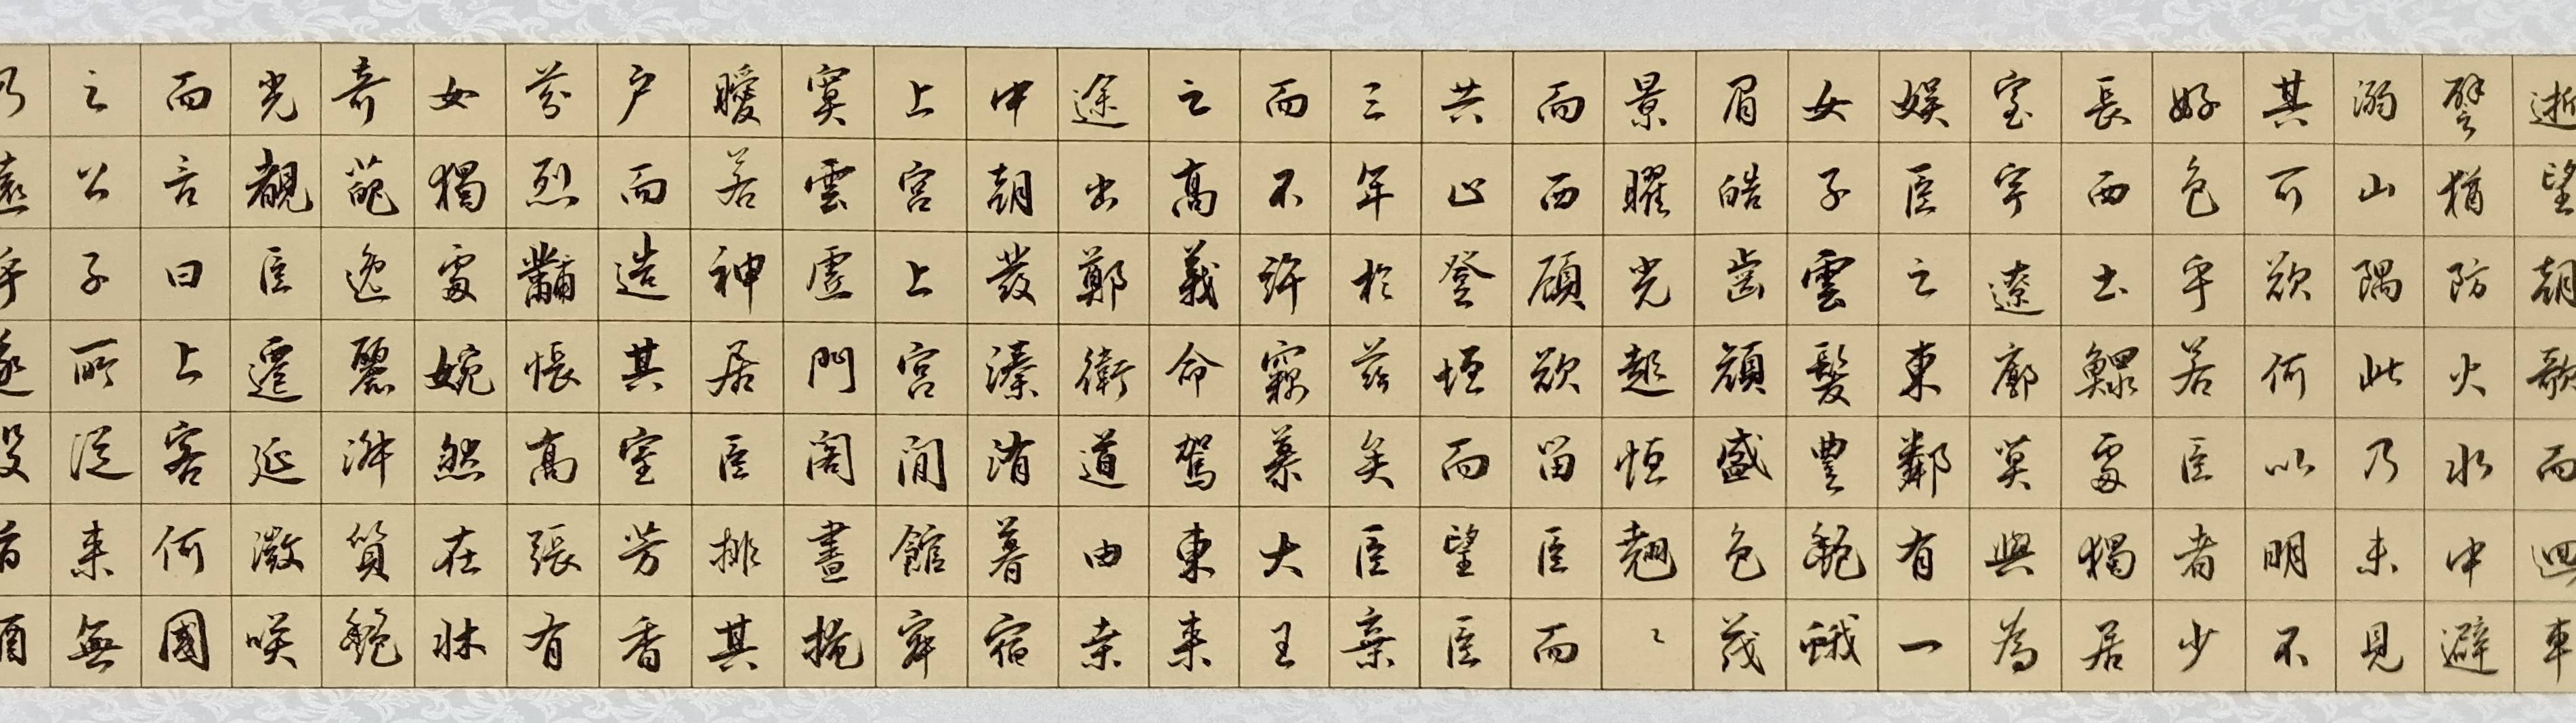 逝望朝歌而迴車
譬猶防火水中避
溺山隅此乃未見
其可欲何以明不
好色乎若臣者少
長西土鰥處獨居
室宇遼廓莫與為
娛臣之東鄰有一
女子雲髮豐艷蛾
眉皓齒顏盛色茂
景曜光起恒翹〻
而西顧欲留臣而
共止登垣而望臣
三年於茲矣臣棄
而不許竊慕大王
之高義命駕東來
途出鄭衛道由桑
中朝發溱洧暮宿
上宮上宮閒館寂
寞雲虛門閤晝掩
曖若神居臣排其
戶而造其室芳香
芬烈黼帳高張有
女獨處婉然在牀
奇葩逸麗淑質艷
光覩臣遷延微咲
而言曰上客何國
之公子所從來無
乃遠乎遂設旨酒